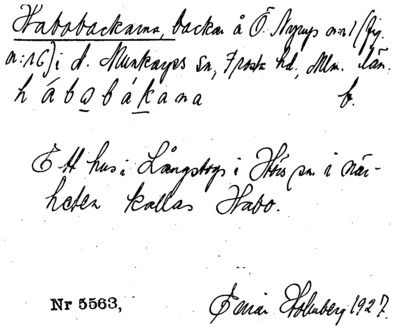 Habobackarna, backar å Ö. Nyrup n:o 1 (fig.
n:16) i d. Munkarps sn, Frosta hd, Mlm. län.
hábobákana b.
Ett hus i Långstorps i Hörs sn i när-
heten kallas Habo.
Nr 5563, Einar Holmberg 1927.